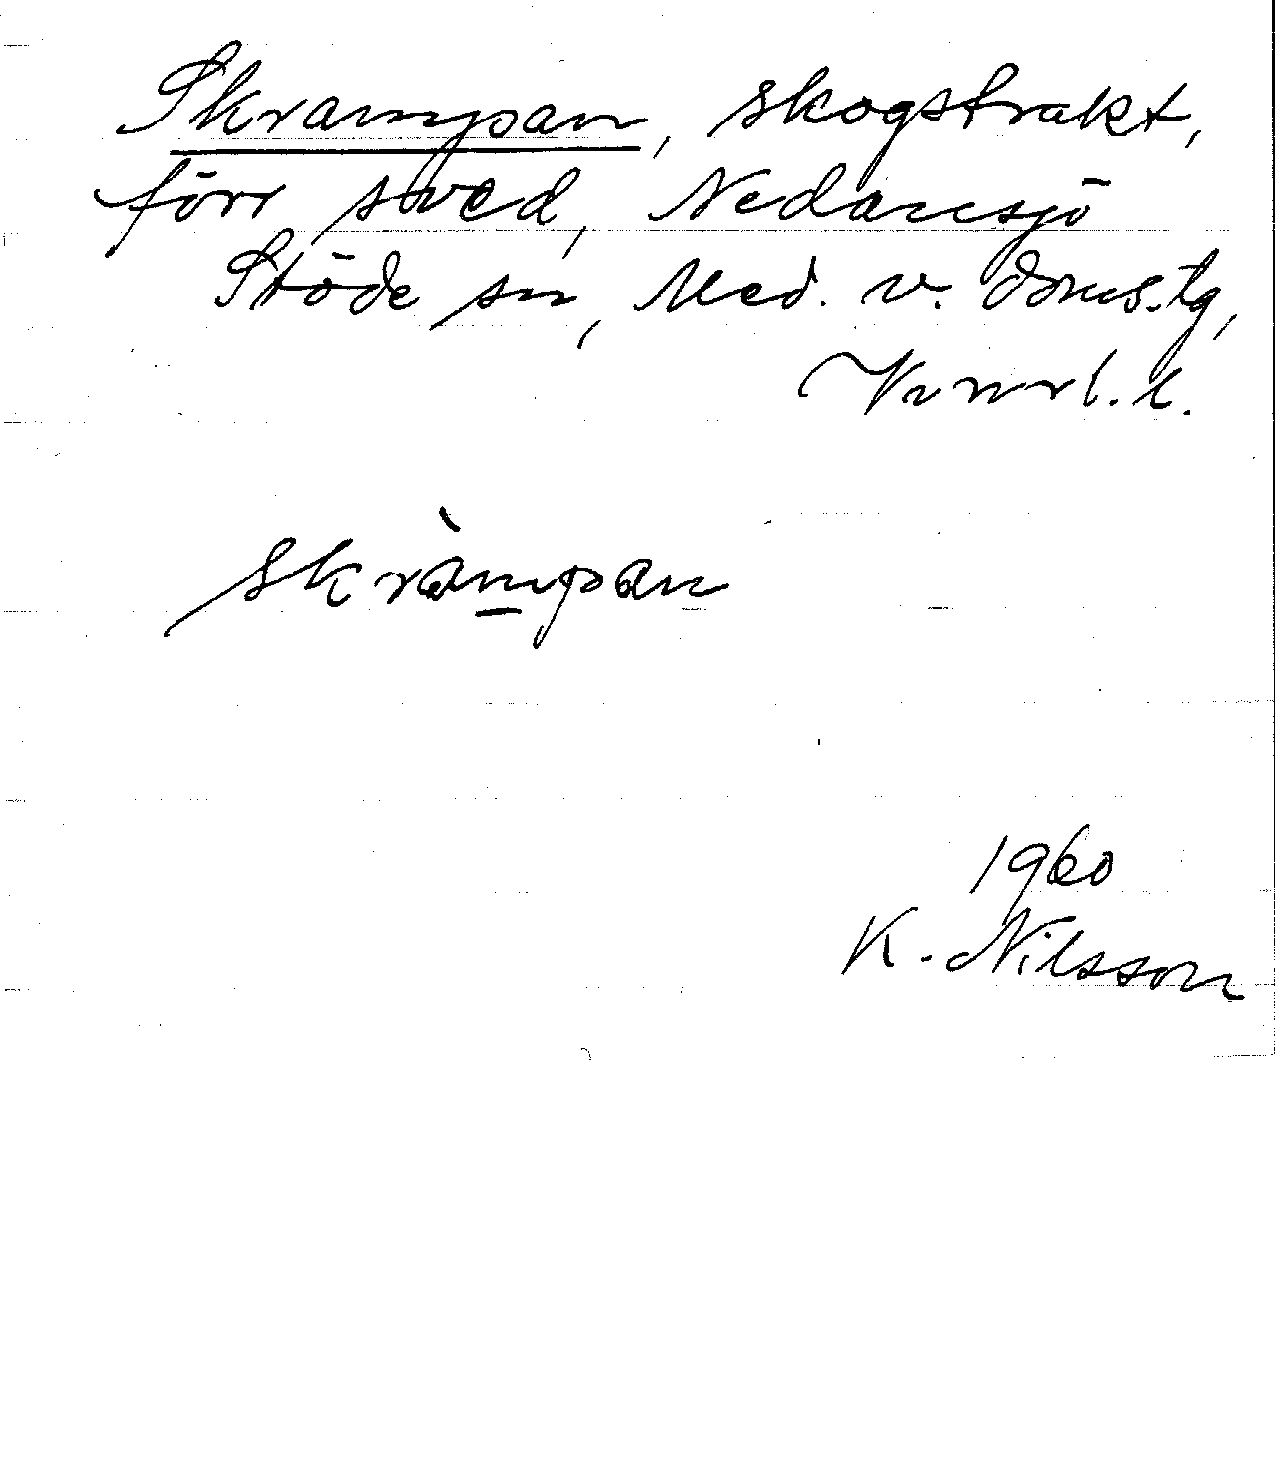 Skrampan, skogstrakt,
förr sved, Nedansjö
Stöde sn, Med. v. doms.tg,
Vnorl. l.
skràmpan
1960
K. Nilsson